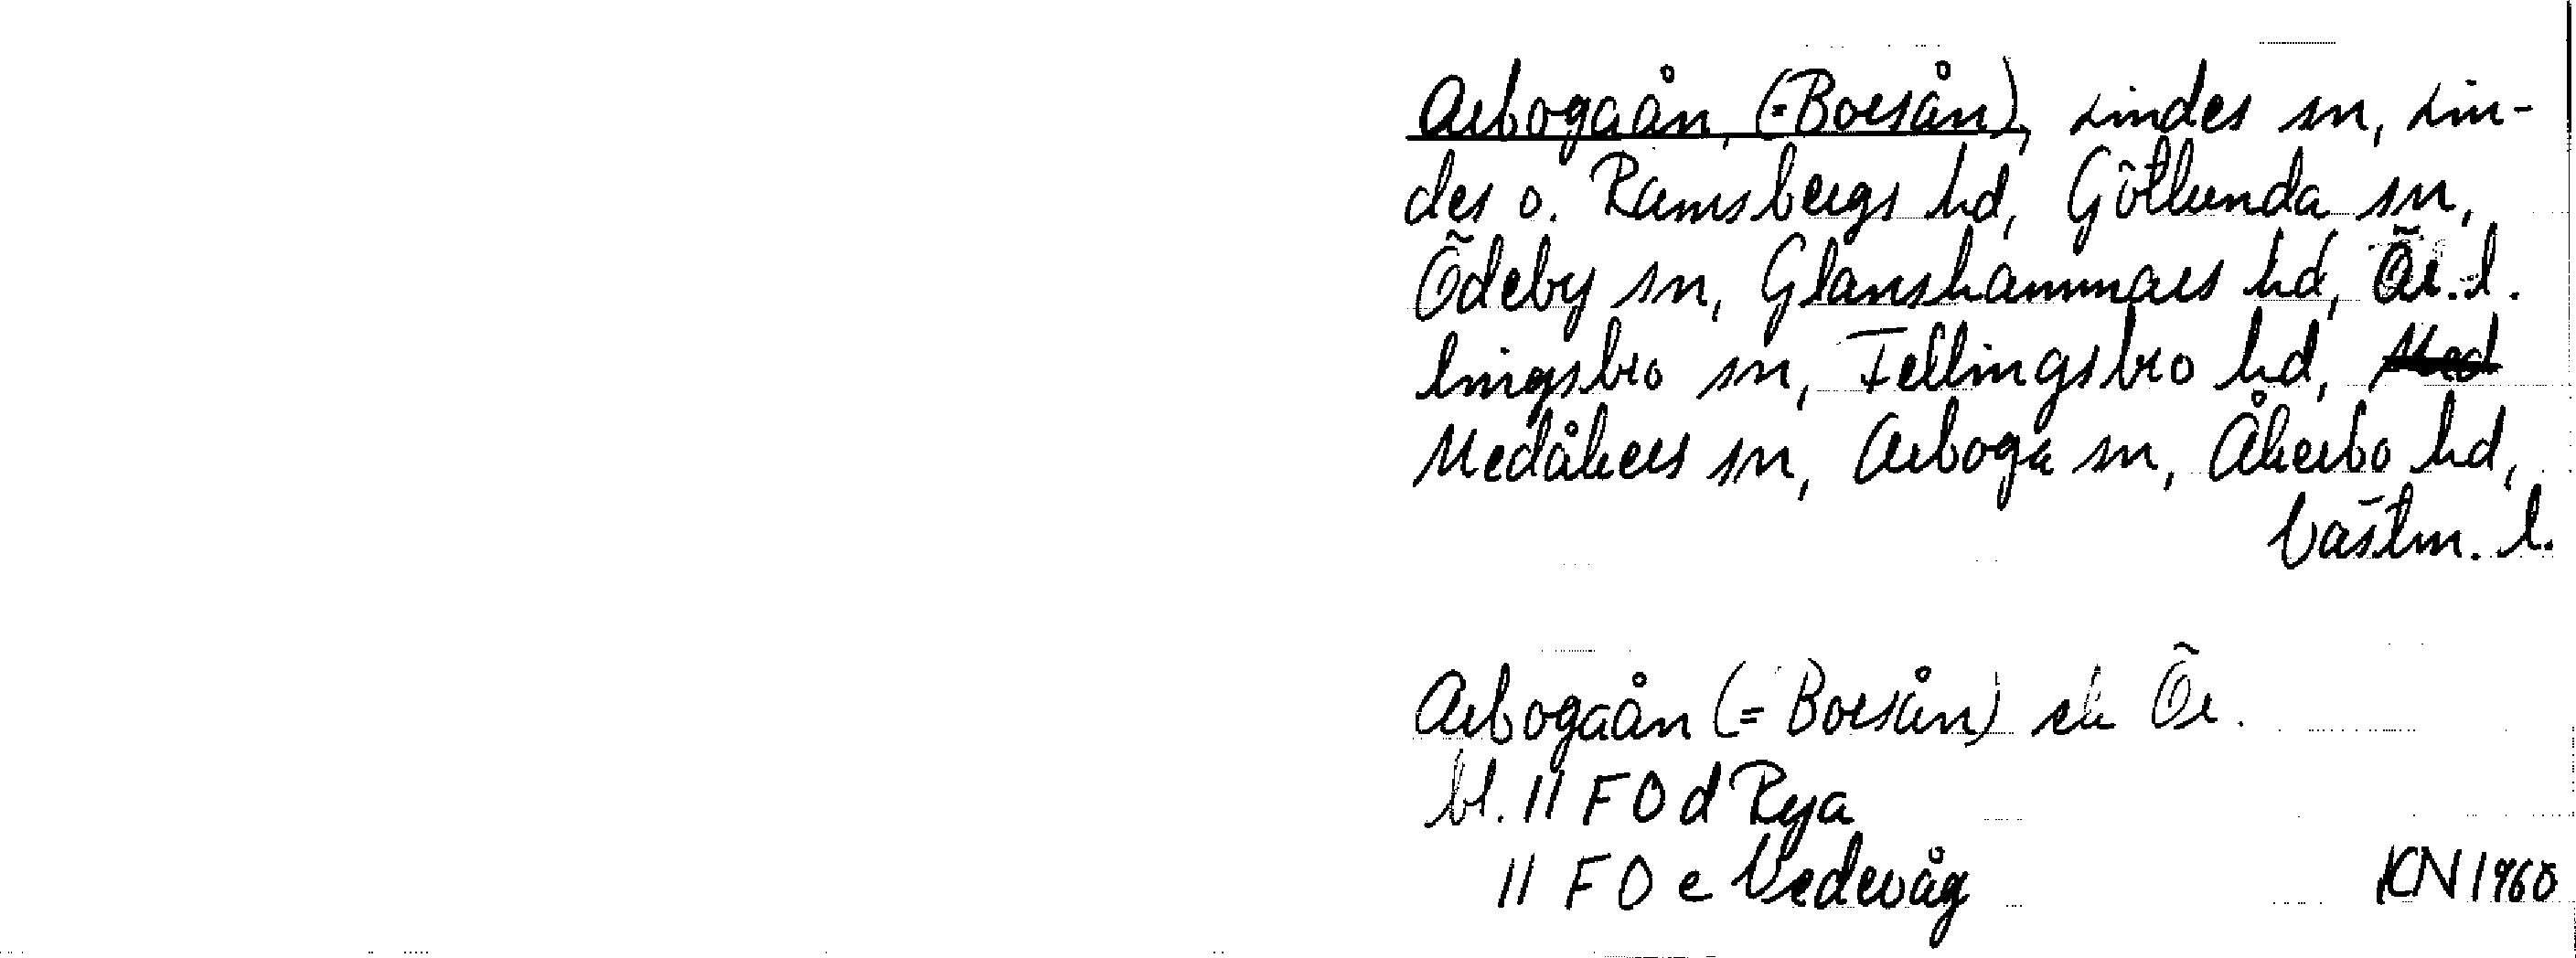 Arbogaån, (=Borsån), Lindes sn, Lin-
des o. Ramsbergs hd, Götlunda sn,
Ödeby sn, Glanshammars hd, Ör. l.
lingsbro sn, Fellingsbro hd, Med
Medåkers sn, Arboga sn, Åkerbo hd,
Västm. l.
Arbogaån (= Borsån) ek Ör.
bl. 11 F 0 d Rya
11 F 0 e Vedevåg
KN 1960